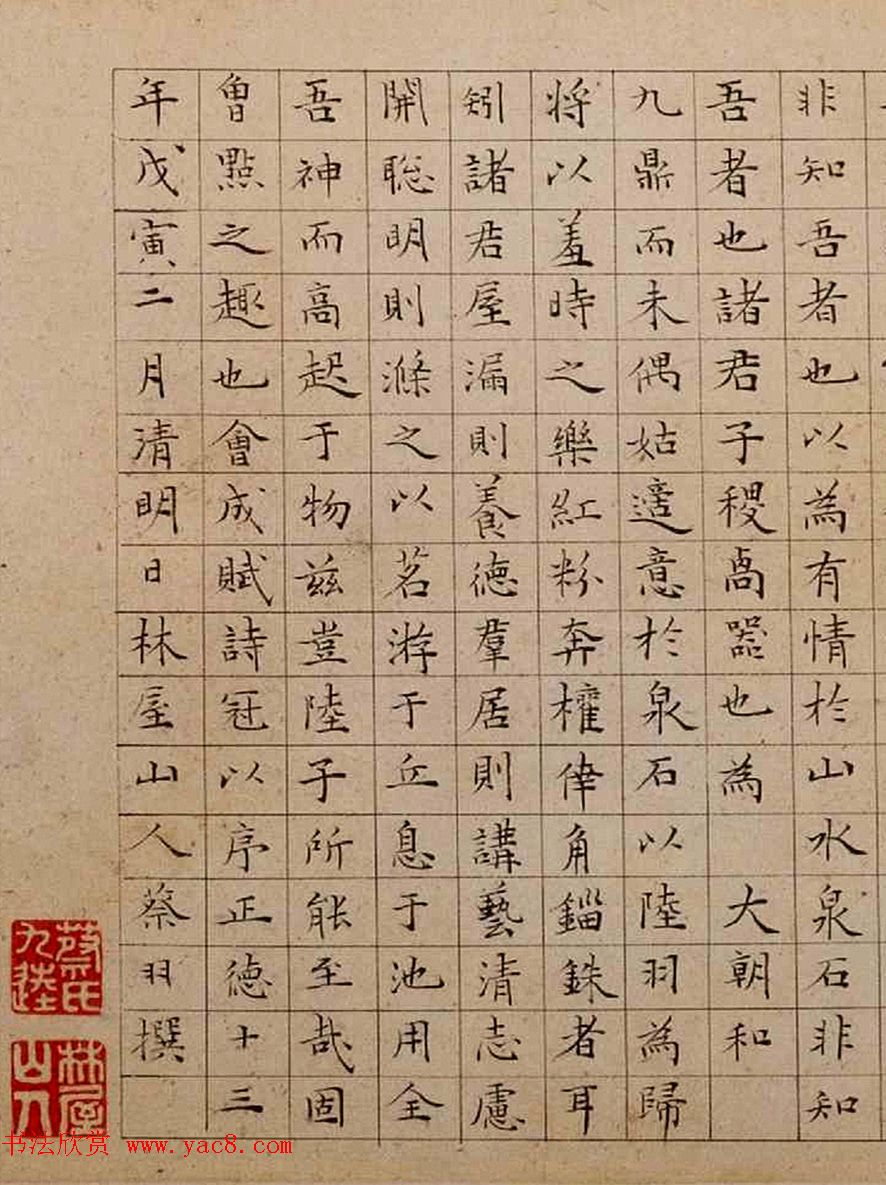 非知吾者也以為有情於山水泉石非知
吾者也諸君子稷卨器也為大朝和
九鼎而未偶姑適意於泉石以陸羽為歸
将以羞時之樂紅粉奔權倖角錙銖者耳
矧諸君屋漏則養德羣居則講藝清志慮
開聡明則滌之以茗游于丘息于池用全
吾神而高起于物兹豈陸子所能至哉固
曾點之趣也會成賦詩冠以序正德十三
年戊寅二月清明日林屋山人蔡羽撰
蔡氏九逵
林屋山人
书法欣赏 www.yac8.com